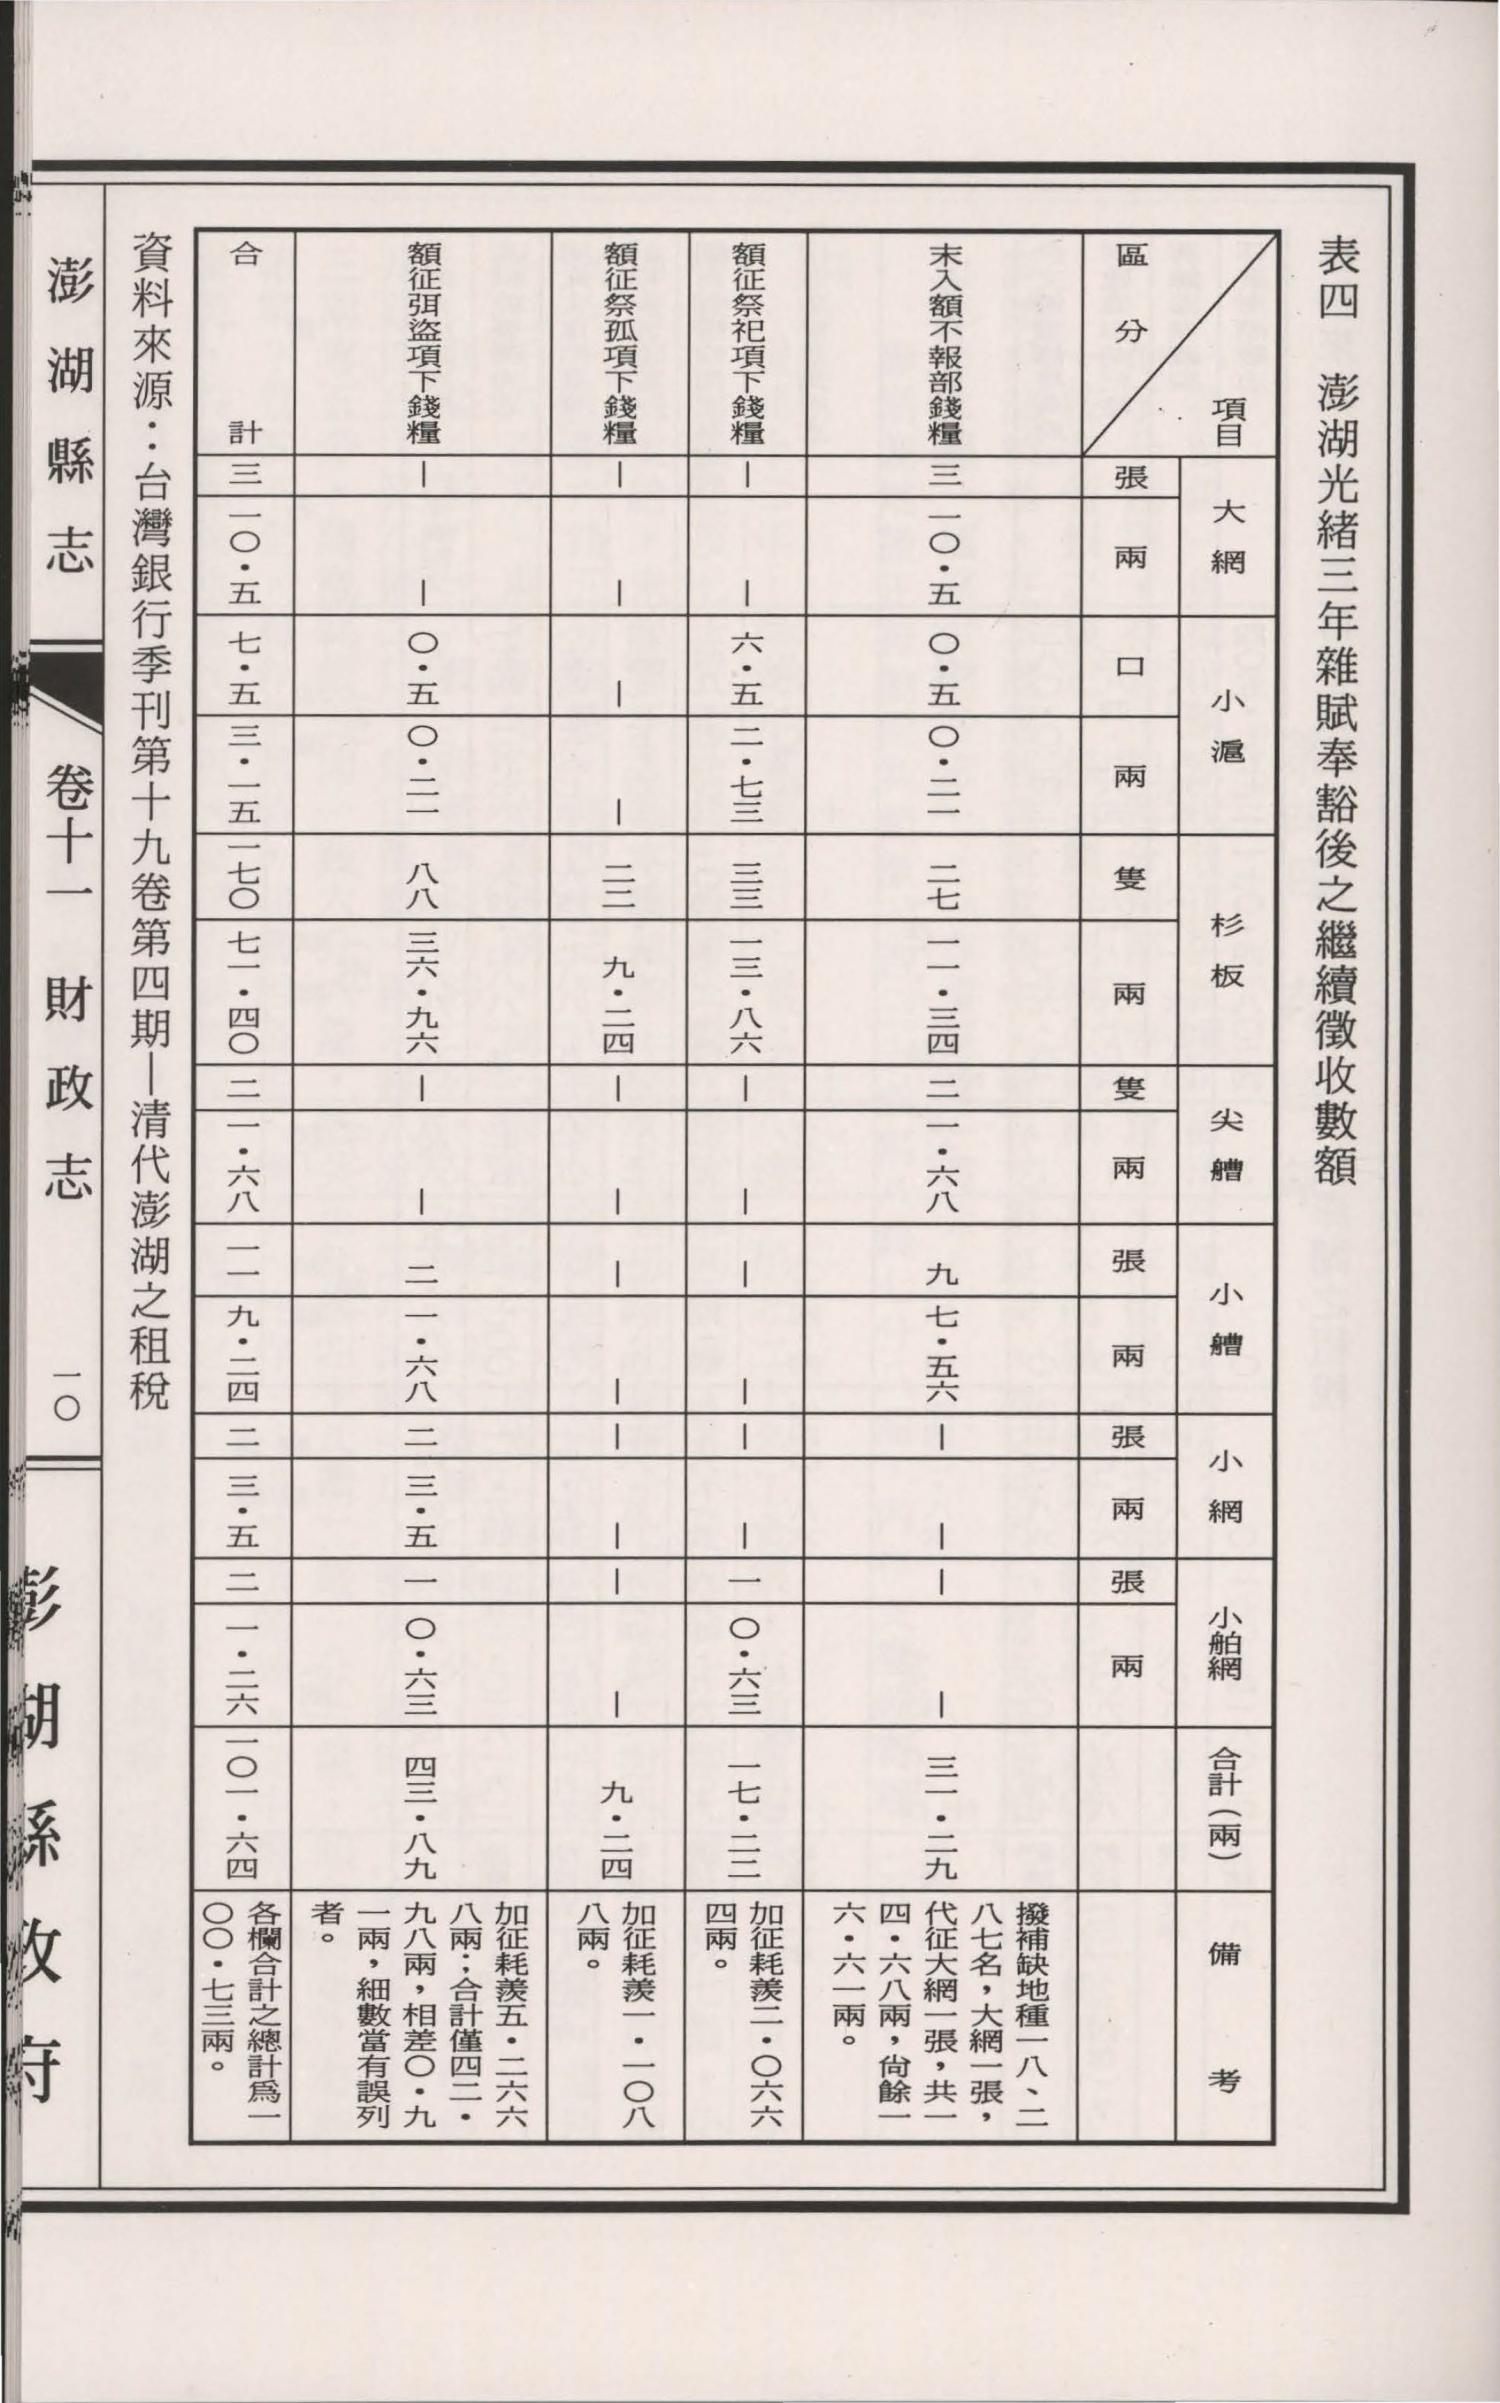 表四　澎湖光緒三年雜賦奉豁後之繼續徵收數額
項目
大網
小滬
杉板
尖艚
小艚
小網
小舶網
合計（兩）
備考
區分
張
兩
口
兩
隻
兩
隻
兩
張
兩
張
兩
張
兩
末入額不報部錢糧
三
一〇・五
〇・五
〇・二一
二七
一一・三四
二
一・六八
九
七・五六
—
—
—
—
三一・二九
撥補缺地種一八、二
八七名，大網一張，
代征大網一張，共一
四・六八兩，尙餘一
六・六一兩。
額征祭祀項下錢糧
—
—
六・五
二・七三
三三
一三・八六
—
—
—
—
—
—
一
〇・六三
一七・二二
加征耗羨二・〇六六
四兩。
額征祭孤項下錢糧
—
—
—
—
二二
九・二四
—
—
—
—
—
—
—
—
九・二四
加征耗羨一・一〇八
八兩。
額征弭盜項下錢糧
—
—
〇・五
〇・二一
八八
三六・九六
—
—
二
一・六八
二
三・五
一
〇・六三
四三・八九
加征耗羨五・二六六
八兩；合計僅四二・
九八兩，相差〇・九
一兩，細數當有誤列
者。
合計
三
一〇・五
七・五
三・一五
一七〇
七一・四〇
二
一・六八
一一
九・二四
二
三・五
二
一・二六
一〇一・六四
各欄合計之總計爲一
〇〇・七三兩。
資料來源：台灣銀行季刊第十九卷第四期—清代澎湖之租稅
澎湖縣志
卷十一　財政志
一〇
澎湖縣政府